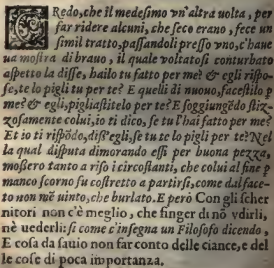 CRedo, che il medesimo vn'altra uolta, per
far ridere alcuni, che seco erano, fece un
simil tratto, passandoli presso vno, c'haue
ua mostra di brauo, il quale voltatosi conturbato
aspetto la disse, hailo tu fatto per me? & egli rispo
se, te lo pigli tu per te? E quelli di nuouo, facestilo p
me? & egli, pigliastitelo per te? E soggiungẽdo stiz-
zosamente colui, io ti dico, se tu l'hai fatto per me?
Et io ti rispõdo, diss'egli, se tu te lo pigli per te? Nel
la qual disputa dimorando essi per buona pezza,
moßero tanto a riso i circostanti, che colui al fine p
manco scorno fu costretto a partirsi, come dal face-
to non mẽ uinto, che burlato. E però Con gli scher
nitori non c'è meglio, che finger di nõ vdirli,
nè uederli: si come c'insegna un Filosofo dicendo,
E cosa da sauio non far conto delle ciance, e del
le cose di poca importanza.